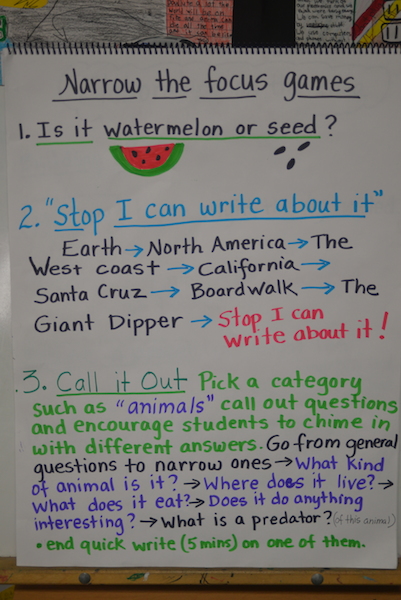 Narrow the focus games
1. Is it watermelon or seed?
2. "Stop I can write about it"
Earth → North America → The
West coast → California →
Santa Cruz → Boardwalk → The
Giant Dipper → Stop I can
write about it!
3. Call it Out Pick a category
such as "animals" call out questions
and encourage students to chime in
with different answers. Go from general
questions to narrow ones → What kind
of animal is it? → Where does it live? →
What does it eat? → Does it do anything
interesting? → What is a predator? (of this animal)
• end quick write (5 mins) on one of them.